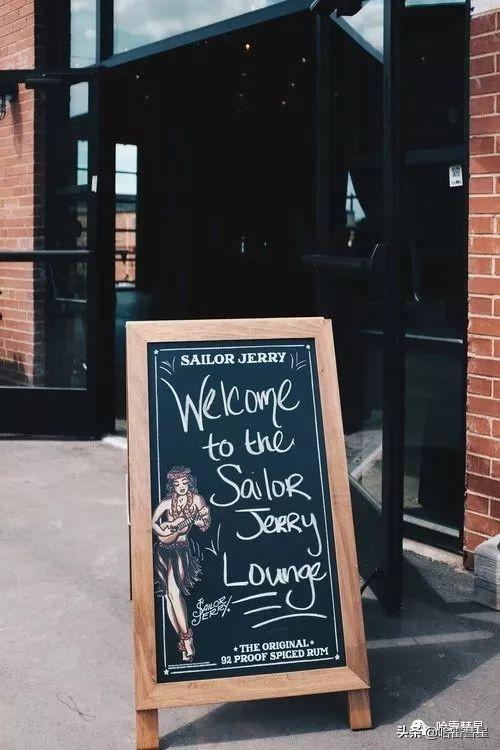 SAILOR JERRY
Welcome
to the
Sailor
Jerry
Lounge
SAILOR
JERRY
THE ORIGINAL
92 PROOF SPICED RUM
哈雷彗星
头条@哈雷彗星